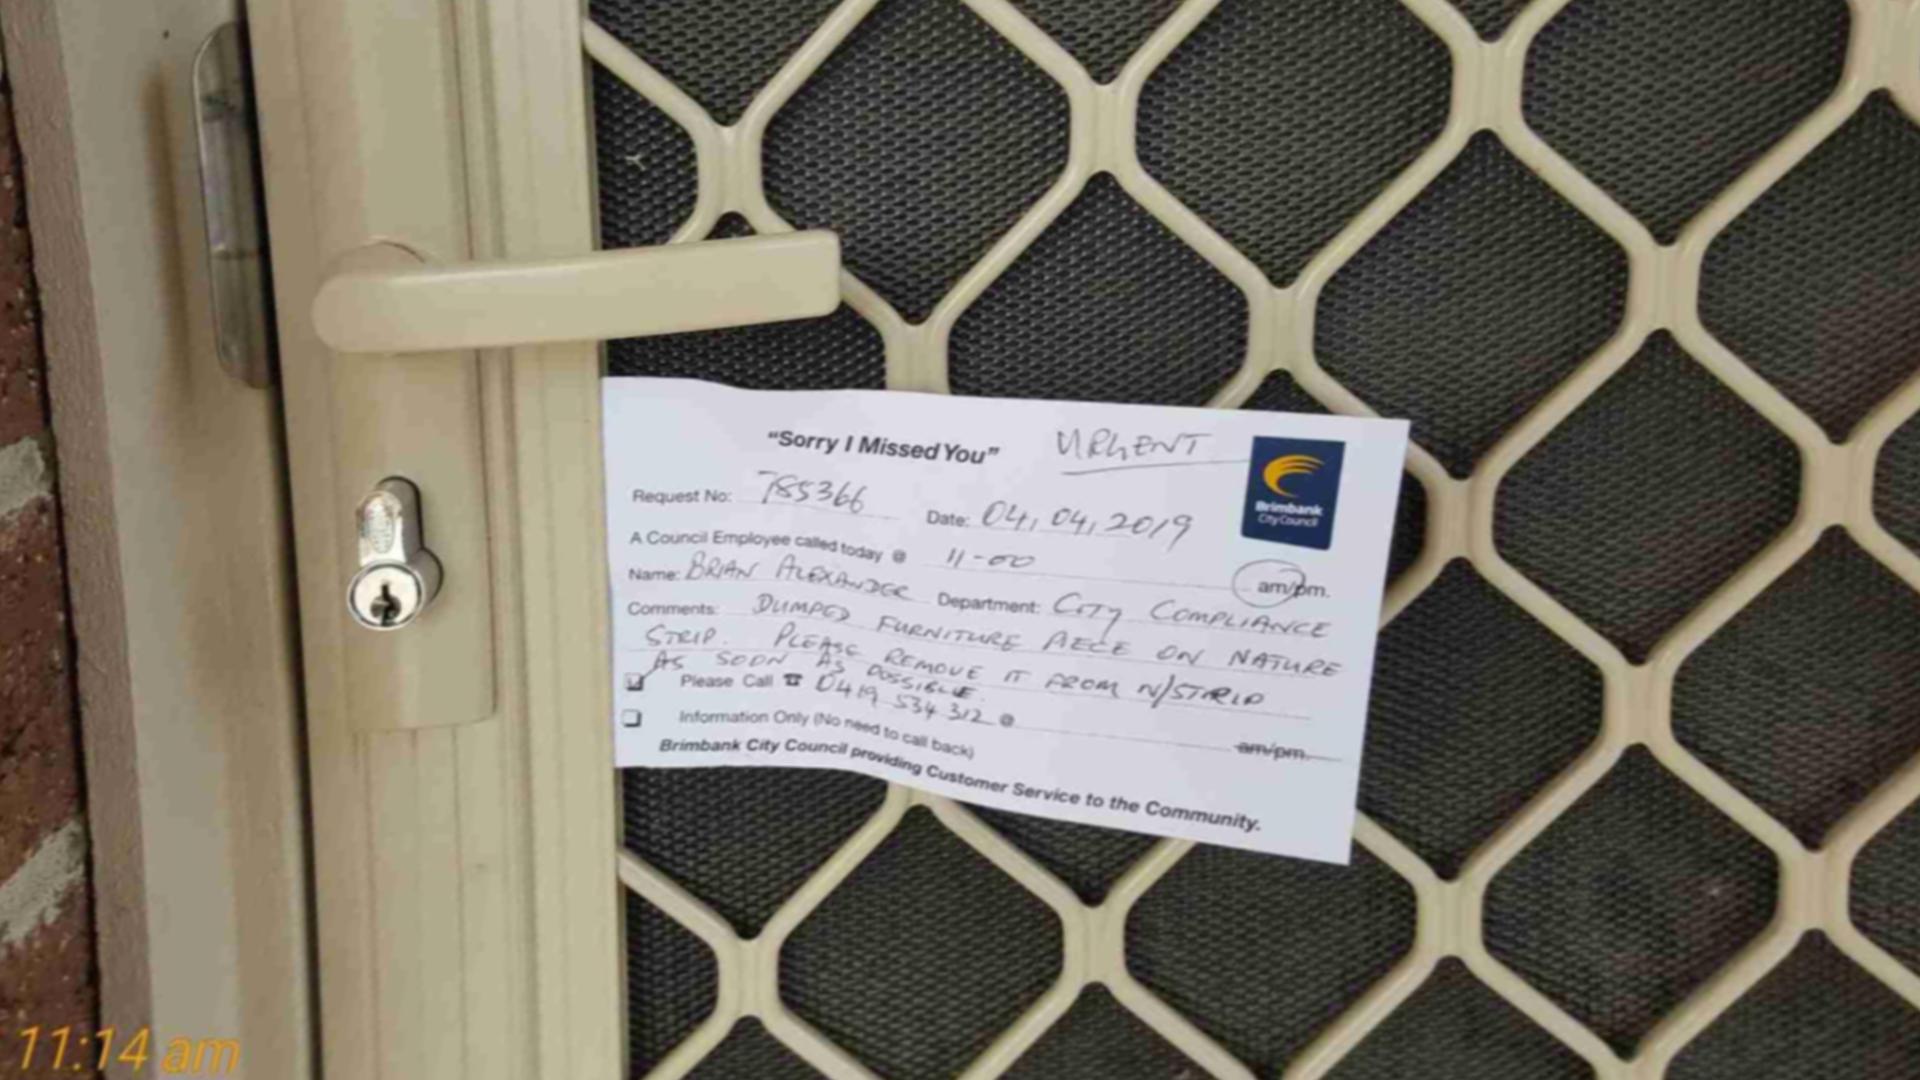 "Sorry I Missed You" URGENT
Brimbank
City Council
Request No: 785366 Date: 04,04,2019
A Council Employee called today @ 11-00 am/pm.
Name: BRIAN ALEXANDER Department: CITY COMPLIANCE
Comments: DUMPED FURNITURE PIECE ON NATURE
STRIP. PLEASE REMOVE IT FROM N/STRIP
AS SOON AS POSSIBLE.
Please Call ☎ 0419 534 312 @ am/pm.
Information Only (No need to call back)
Brimbank City Council providing Customer Service to the Community.
11:14 am